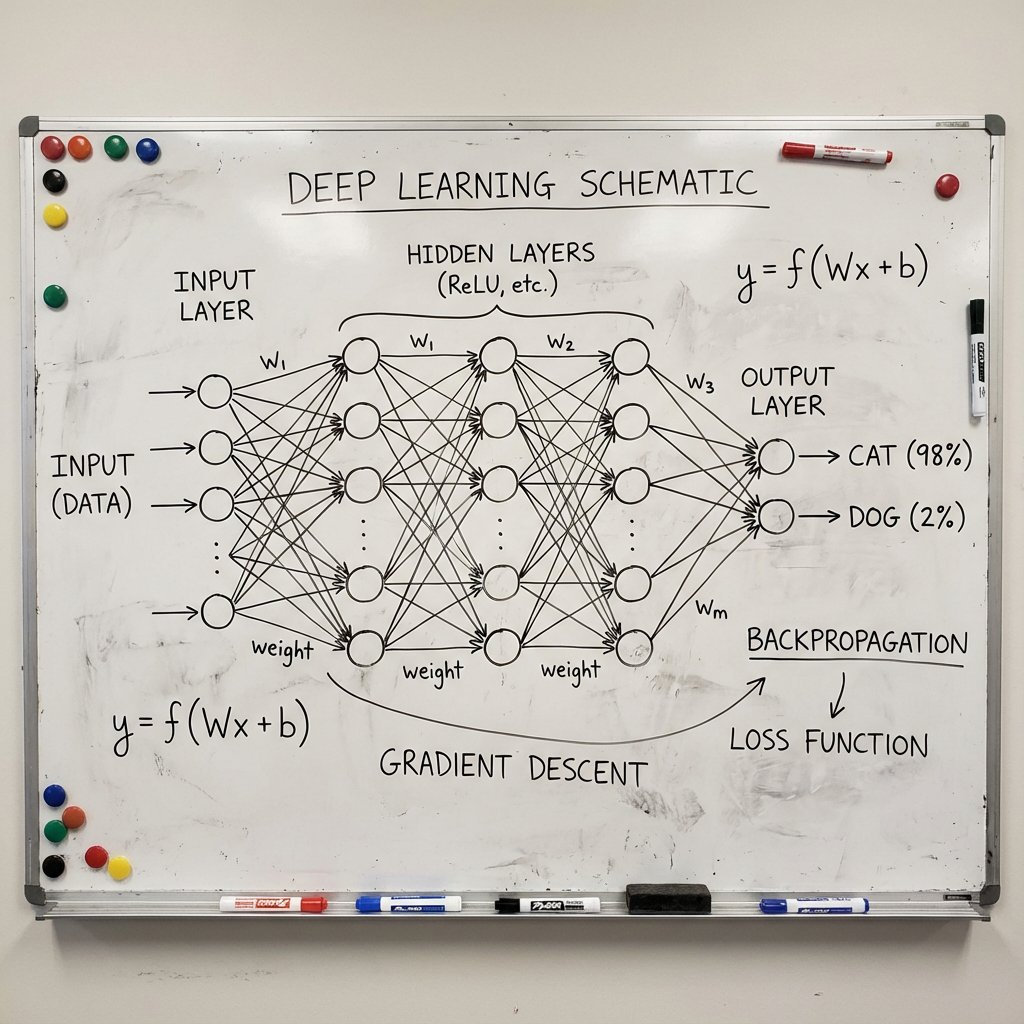 DEEP LEARNING SCHEMATIC
HIDDEN LAYERS
(ReLU, etc.)
y = f(Wx + b)
INPUT
LAYER
W₁
W₁
W₂
W₃
OUTPUT
LAYER
INPUT
(DATA)
CAT (98%)
DOG (2%)
Wm
weight
weight
weight
BACKPROPAGATION
y = f(Wx + b)
LOSS FUNCTION
GRADIENT DESCENT